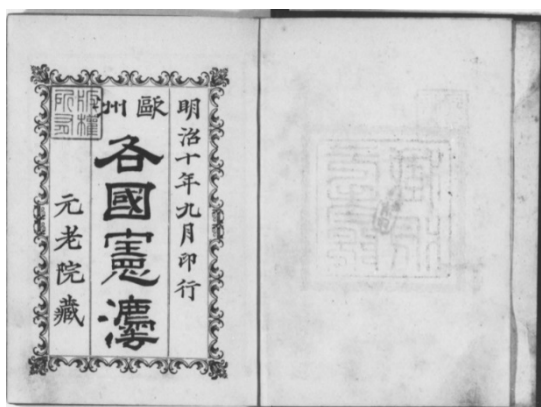 明治十年九月印行
歐州
各國憲灋
元老院藏
版權
所有